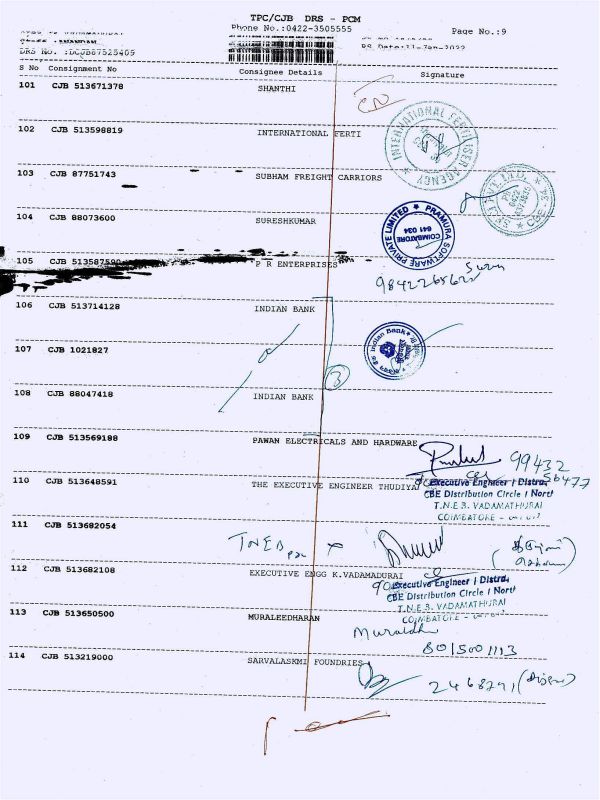 TPC/CJB DRS - PCM
Phone No.:0422-3505555
Page No.:9
DRS No. :DCJB87525409
RS Date:11-Jan-2022
S No Consignment No Consignee Details Signature
101 CJB 513671378 SHANTHI
102 CJB 513598819 INTERNATIONAL FERTI
INTERNATIONAL FERTILISER AGENCY
103 CJB 87751743 SUBHAM FREIGHT CARRIORS
104 CJB 88073600 SURESHKUMAR
PRAMURA SOFTWARE PRIVATE LIMITED
COIMBATORE
641 034
105 CJB 513587590 P R ENTERPRISES
106 CJB 513714128 INDIAN BANK
Indian Bank
107 CJB 1021827
3
108 CJB 88047418 INDIAN BANK
109 CJB 513569188 PAWAN ELECTRICALS AND HARDWARE
99432
56477
110 CJB 513648591 THE EXECUTIVE ENGINEER THUDIYA
Executive Engineer / Distrn.
CBE Distribution Circle / North
T.N.E.B. VADAMATHURAI
COIMBATORE -
111 CJB 513682054
TNEB
112 CJB 513682108 EXECUTIVE ENGG K.VADAMADURAI
Executive Engineer / Distrn.
CBE Distribution Circle / North
T.N.E.B. VADAMATHURAI
COIMBATORE -
113 CJB 513650500 MURALEEDHARAN
8015001113
114 CJB 513219000 SARVALASKMI FOUNDRIES
2468791